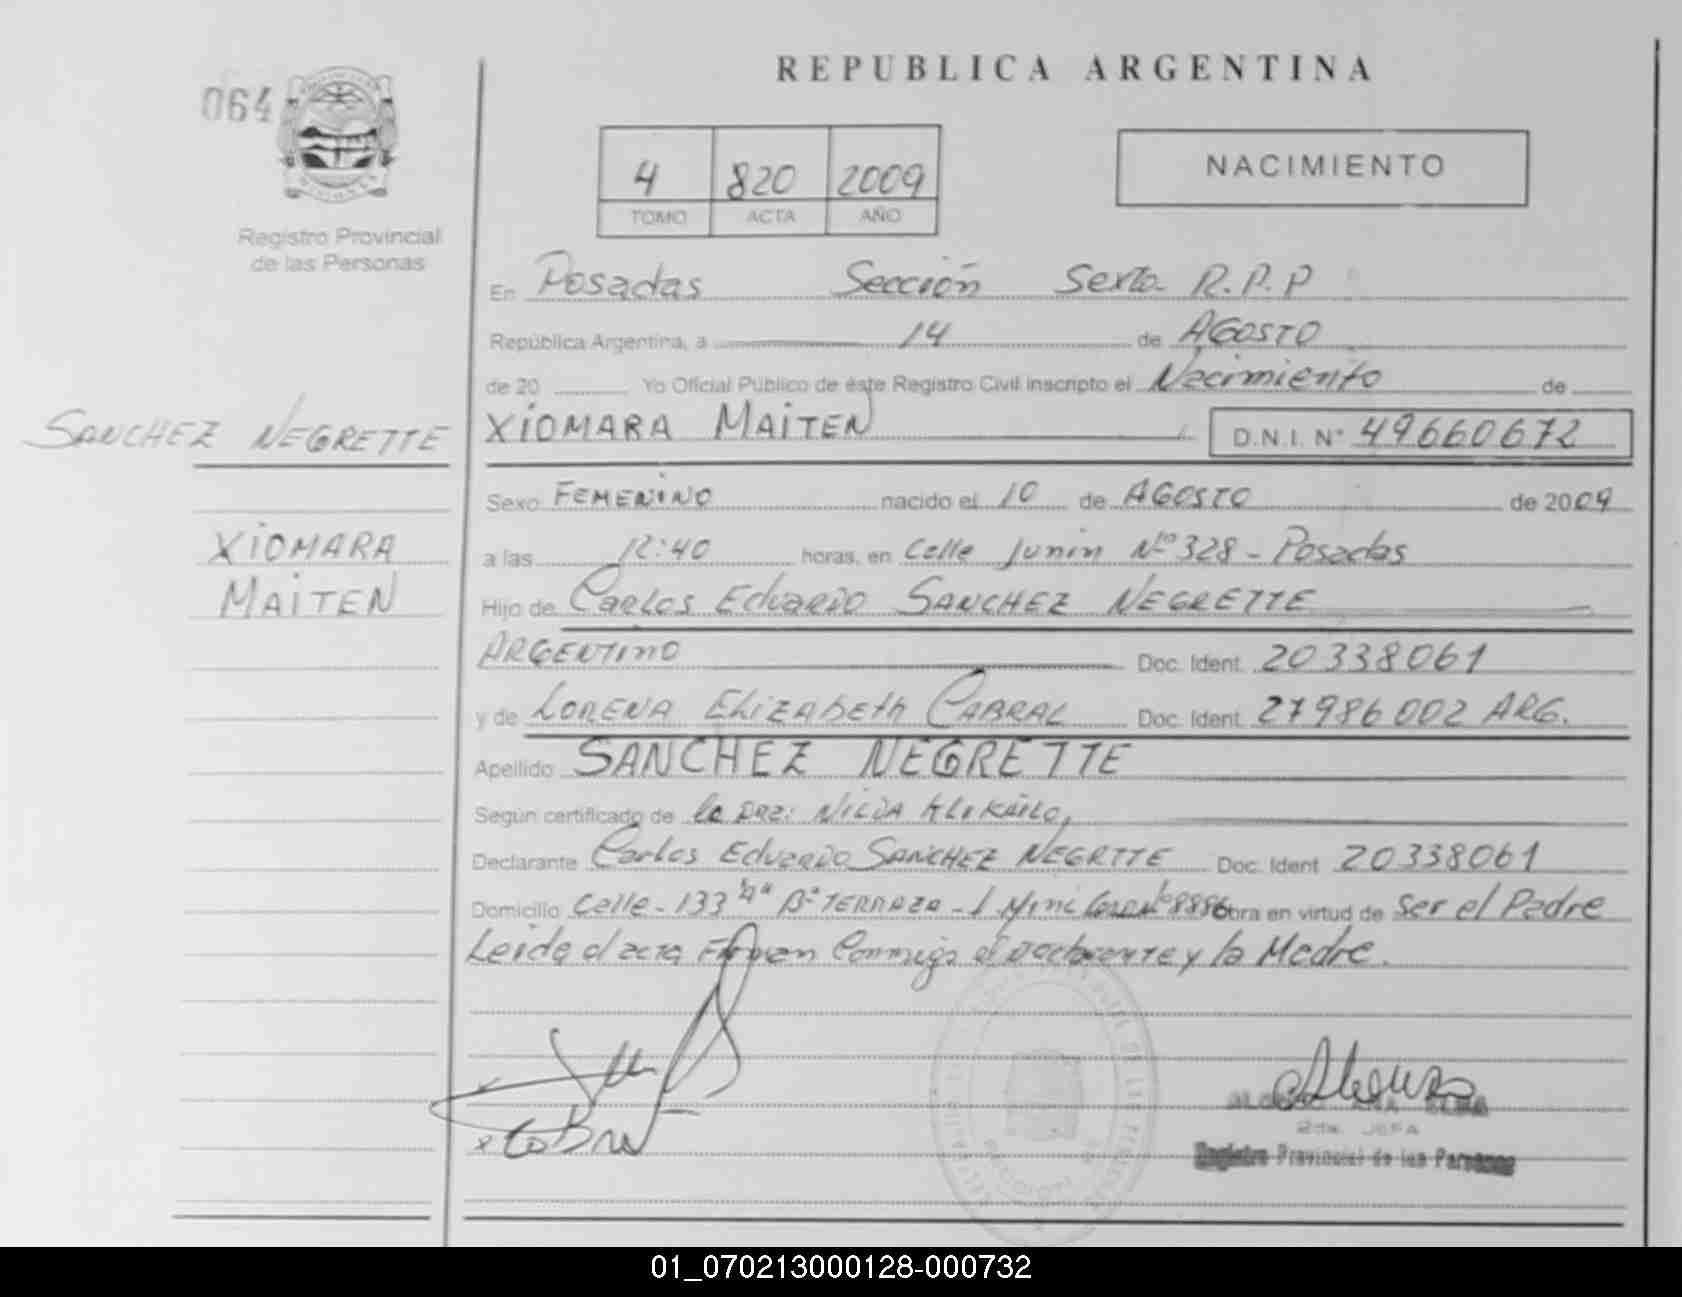 REPUBLICA ARGENTINA
064
4 820 2009
TOMO ACTA AÑO
NACIMIENTO
Registro Provincial
de las Personas
En Posadas Sección Sexta R.P.P
República Argentina, a 14 de AGOSTO
de 20 Yo Oficial Público de éste Registro Civil inscripto el Nacimiento de
SANCHEZ NEGRETTE
XIOMARA MAITEN D.N.I. N° 49660672
Sexo FEMENINO nacido el 10 de AGOSTO de 2009
XIOMARA
a las 12:40 horas, en Calle Junin Nº 328 - Posadas
MAITEN
Hijo de Carlos Eduardo SANCHEZ NEGRETTE
ARGENTINO Doc. Ident. 20338061
y de LORENA ELIZABETH CABRAL Doc. Ident. 27986002 ARG.
Apellido SANCHEZ NEGRETTE
Según certificado de la DRA: NILDA
Declarante Carlos Eduardo SANCHEZ NEGRTTE Doc. Ident. 20338061
Domicilio Calle - 133 Bº TERRAZA - obra en virtud de ser el Padre
Leida el acta Firman Conmigo el Declarante y la Madre.
2da. JEFA
Registro Provincial de las Personas
01_070213000128-000732